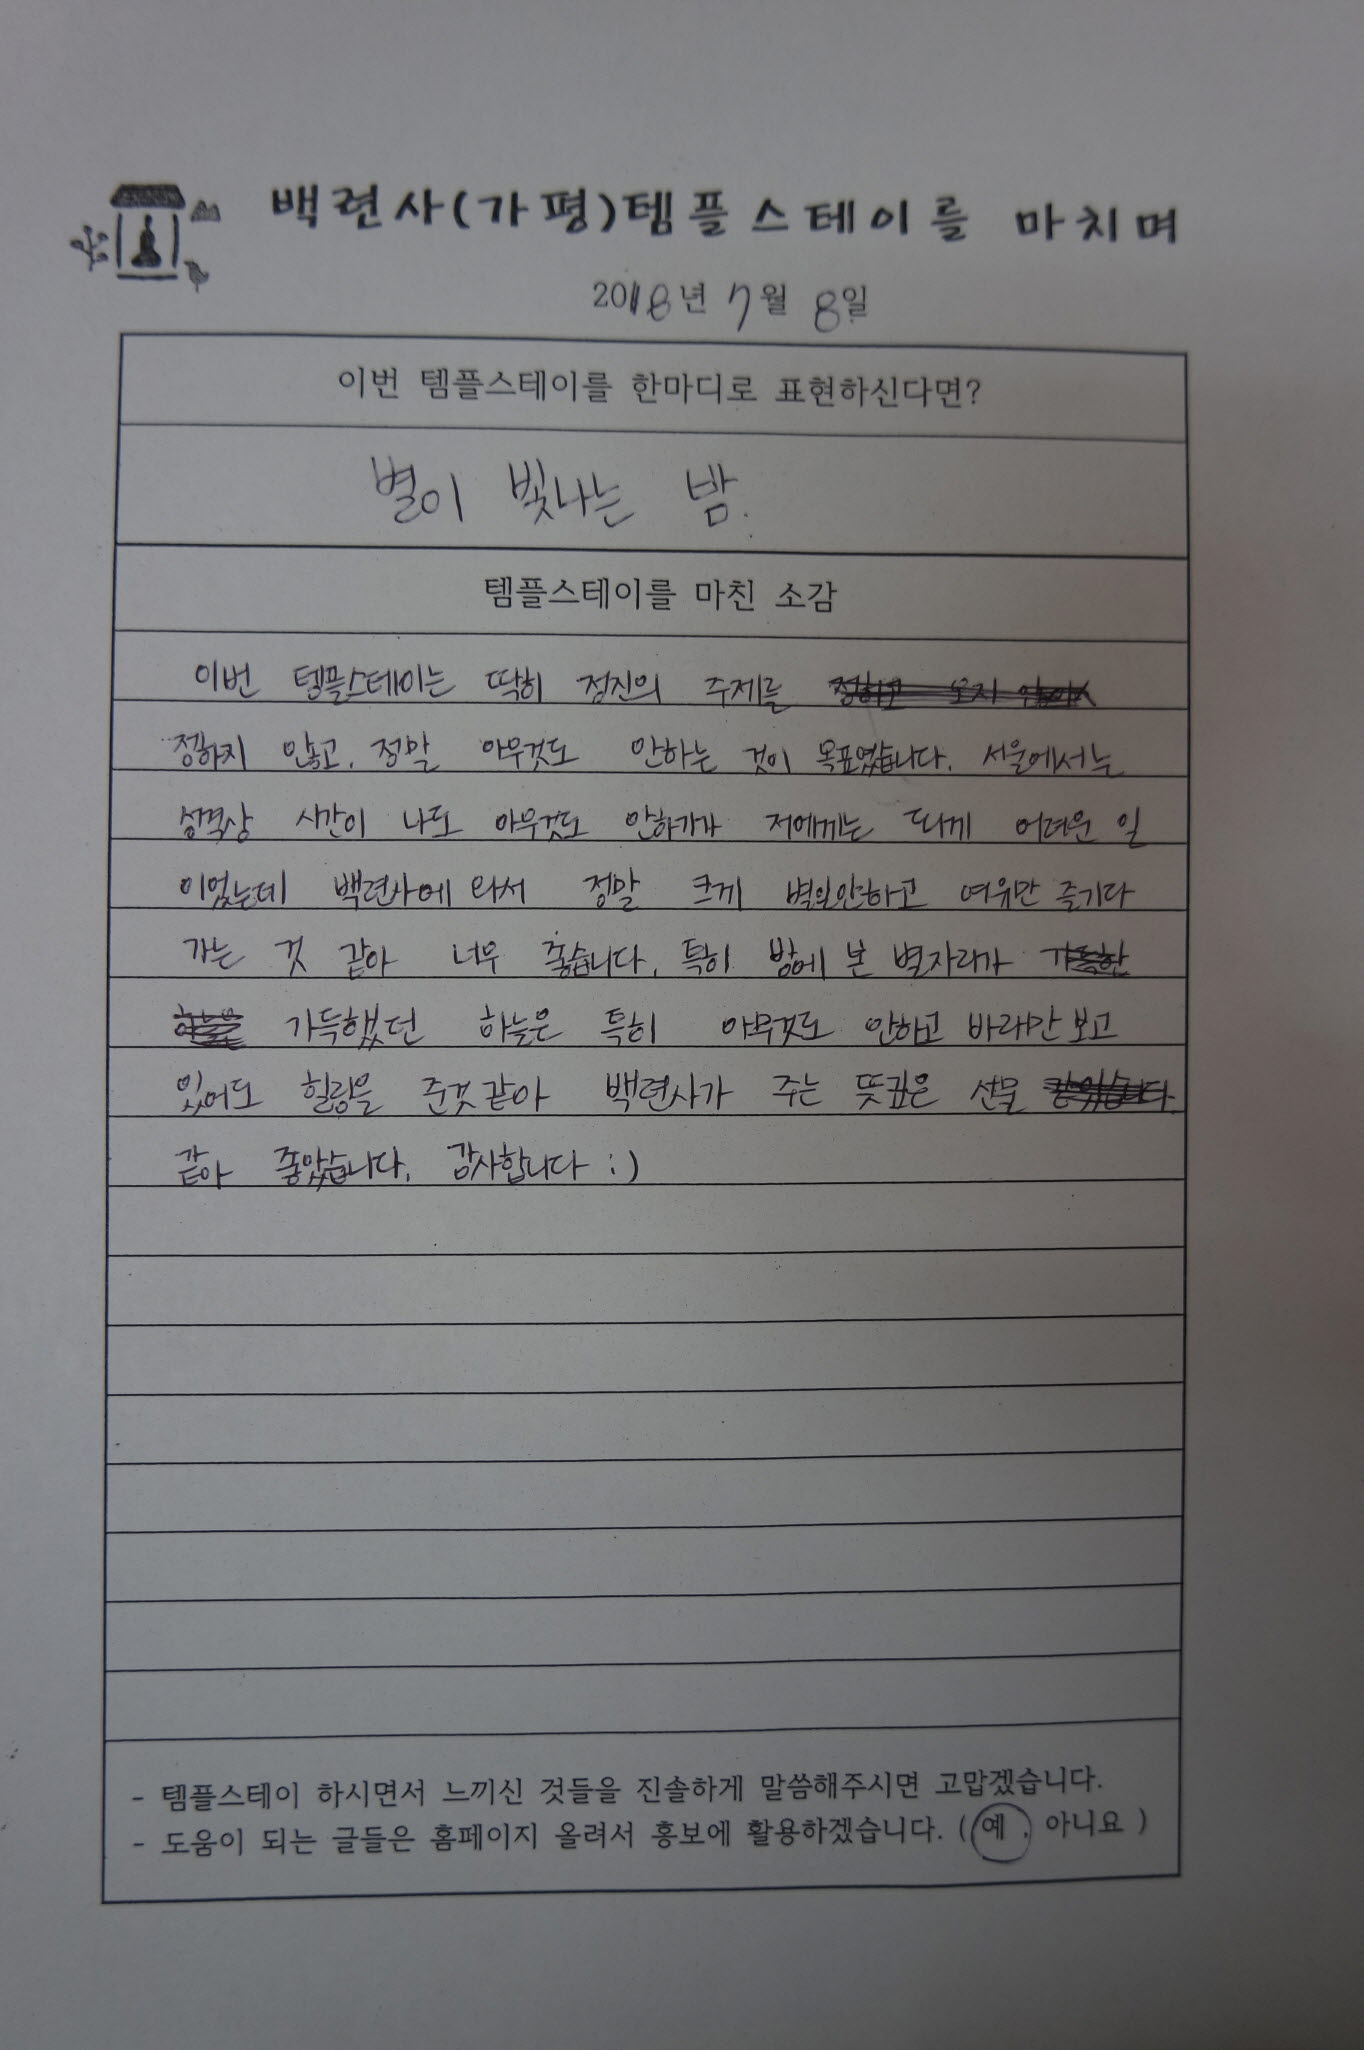 백련사(가평)템플스테이를 마치며
2018년 7월 8일
이번 템플스테이를 한마디로 표현하신다면?
별이 빛나는 밤.
템플스테이를 마친 소감
이번 템플스테이는 딱히 정진의 주제를
정하지 않고, 정말 아무것도 안하는 것이 목표였습니다. 서울에서는
성격상 시간이 나도 아무것도 안하기가 저에게는 되게 어려운 일
이었는데 백련사에 와서 정말 크게 별일안하고 여유만 즐기다
가는 것 같아 너무 좋습니다. 특히 밤에 본 별자리가
가득했던 하늘은 특히 아무것도 안하고 바라만 보고
있어도 힐링을 준것 같아 백련사가 주는 뜻깊은 선물
같아 좋았습니다. 감사합니다 :)
- 템플스테이 하시면서 느끼신 것들을 진솔하게 말씀해주시면 고맙겠습니다.
- 도움이 되는 글들은 홈페이지 올려서 홍보에 활용하겠습니다. ( 예 , 아니요 )